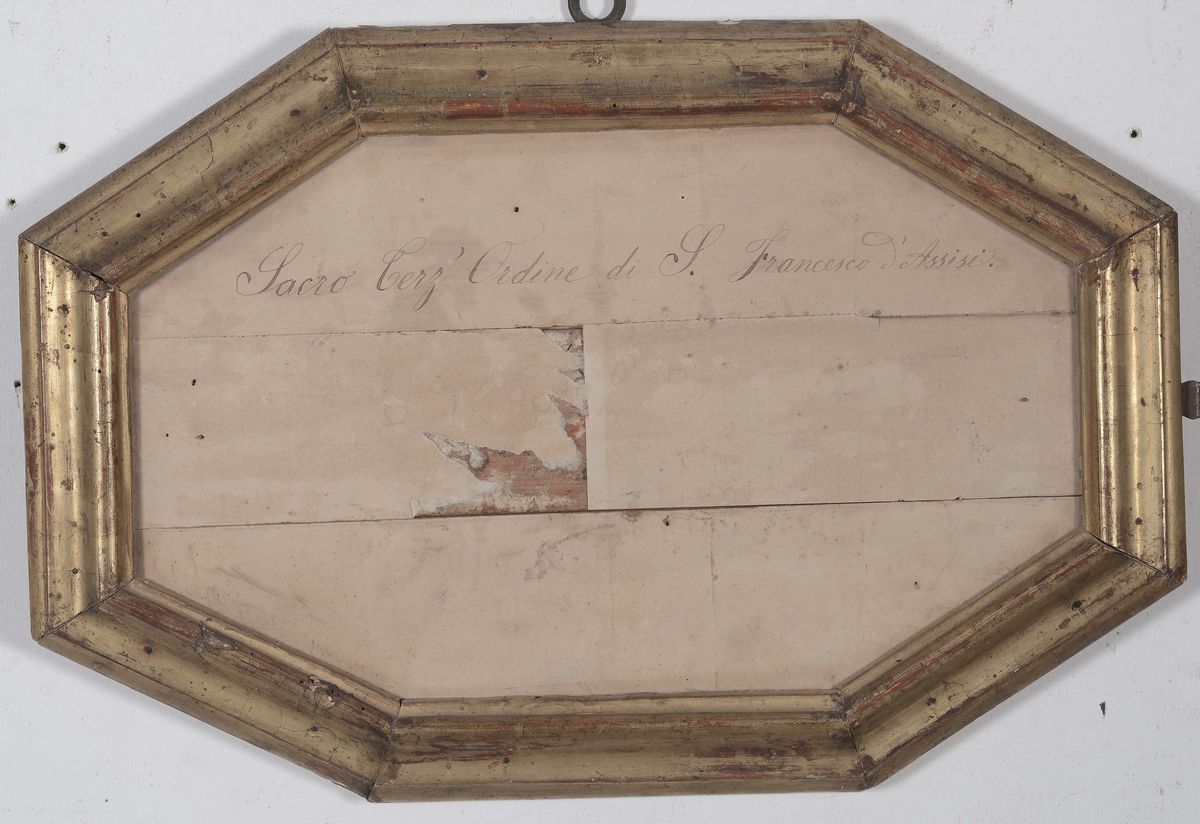 Sacro Terz' Ordine di S. Francesco d'Assisi.